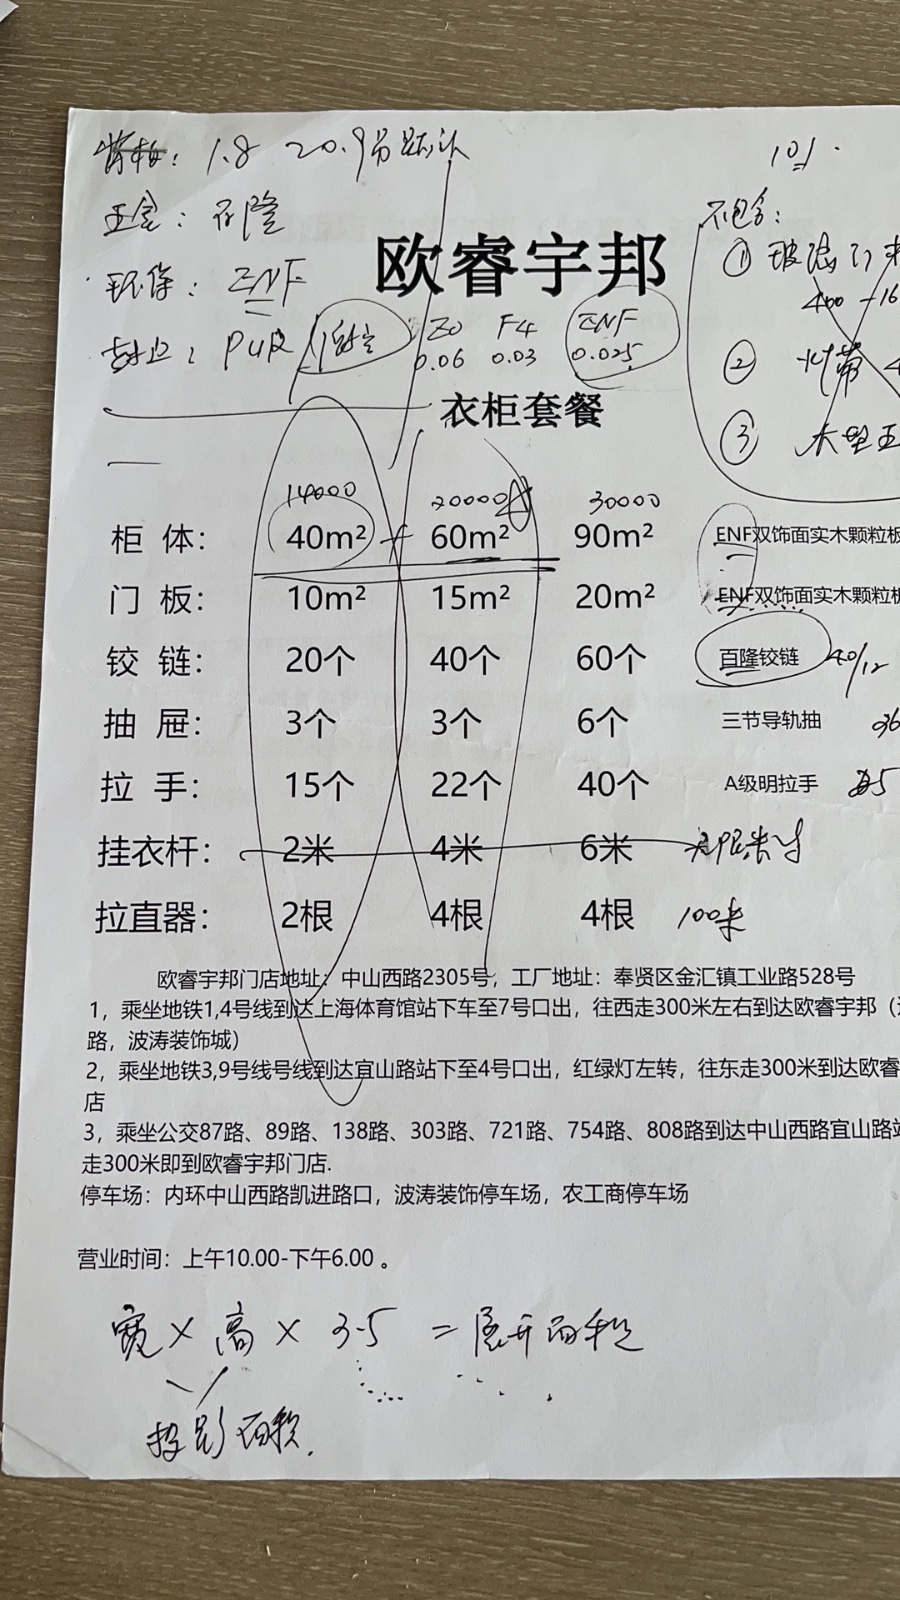 背板：1.8 20.9
101.
五金：百隆
不包含：
环保：ENF
① 玻璃门
400-16
欧睿宇邦
封边：PUR/
E0 F4 ENF
0.06 0.03 0.025
②
衣柜套餐
③ 大型五
14000 20000 30000
柜 体： 40m² 60m² 90m² ENF双饰面实木颗粒板
门 板： 10m² 15m² 20m² ENF双饰面实木颗粒板
铰 链： 20个 40个 60个 百隆铰链 40/12
抽 屉： 3个 3个 6个 三节导轨抽 36
拉 手： 15个 22个 40个 A级明拉手
挂衣杆： 2米 4米 6米 无限米寸
拉直器： 2根 4根 4根 100米
欧睿宇邦门店地址：中山西路2305号，工厂地址：奉贤区金汇镇工业路528号
1，乘坐地铁1,4号线到达上海体育馆站下车至7号口出，往西走300米左右到达欧睿宇邦（
路，波涛装饰城）
2，乘坐地铁3,9号线号线到达宜山路站下至4号口出，红绿灯左转，往东走300米到达欧睿
店
3，乘坐公交87路、89路、138路、303路、721路、754路、808路到达中山西路宜山路站
走300米即到欧睿宇邦门店.
停车场：内环中山西路凯进路口，波涛装饰停车场，农工商停车场
营业时间：上午10.00-下午6.00 。
宽 × 高 × 3.5 = 展开面积
投影面积.